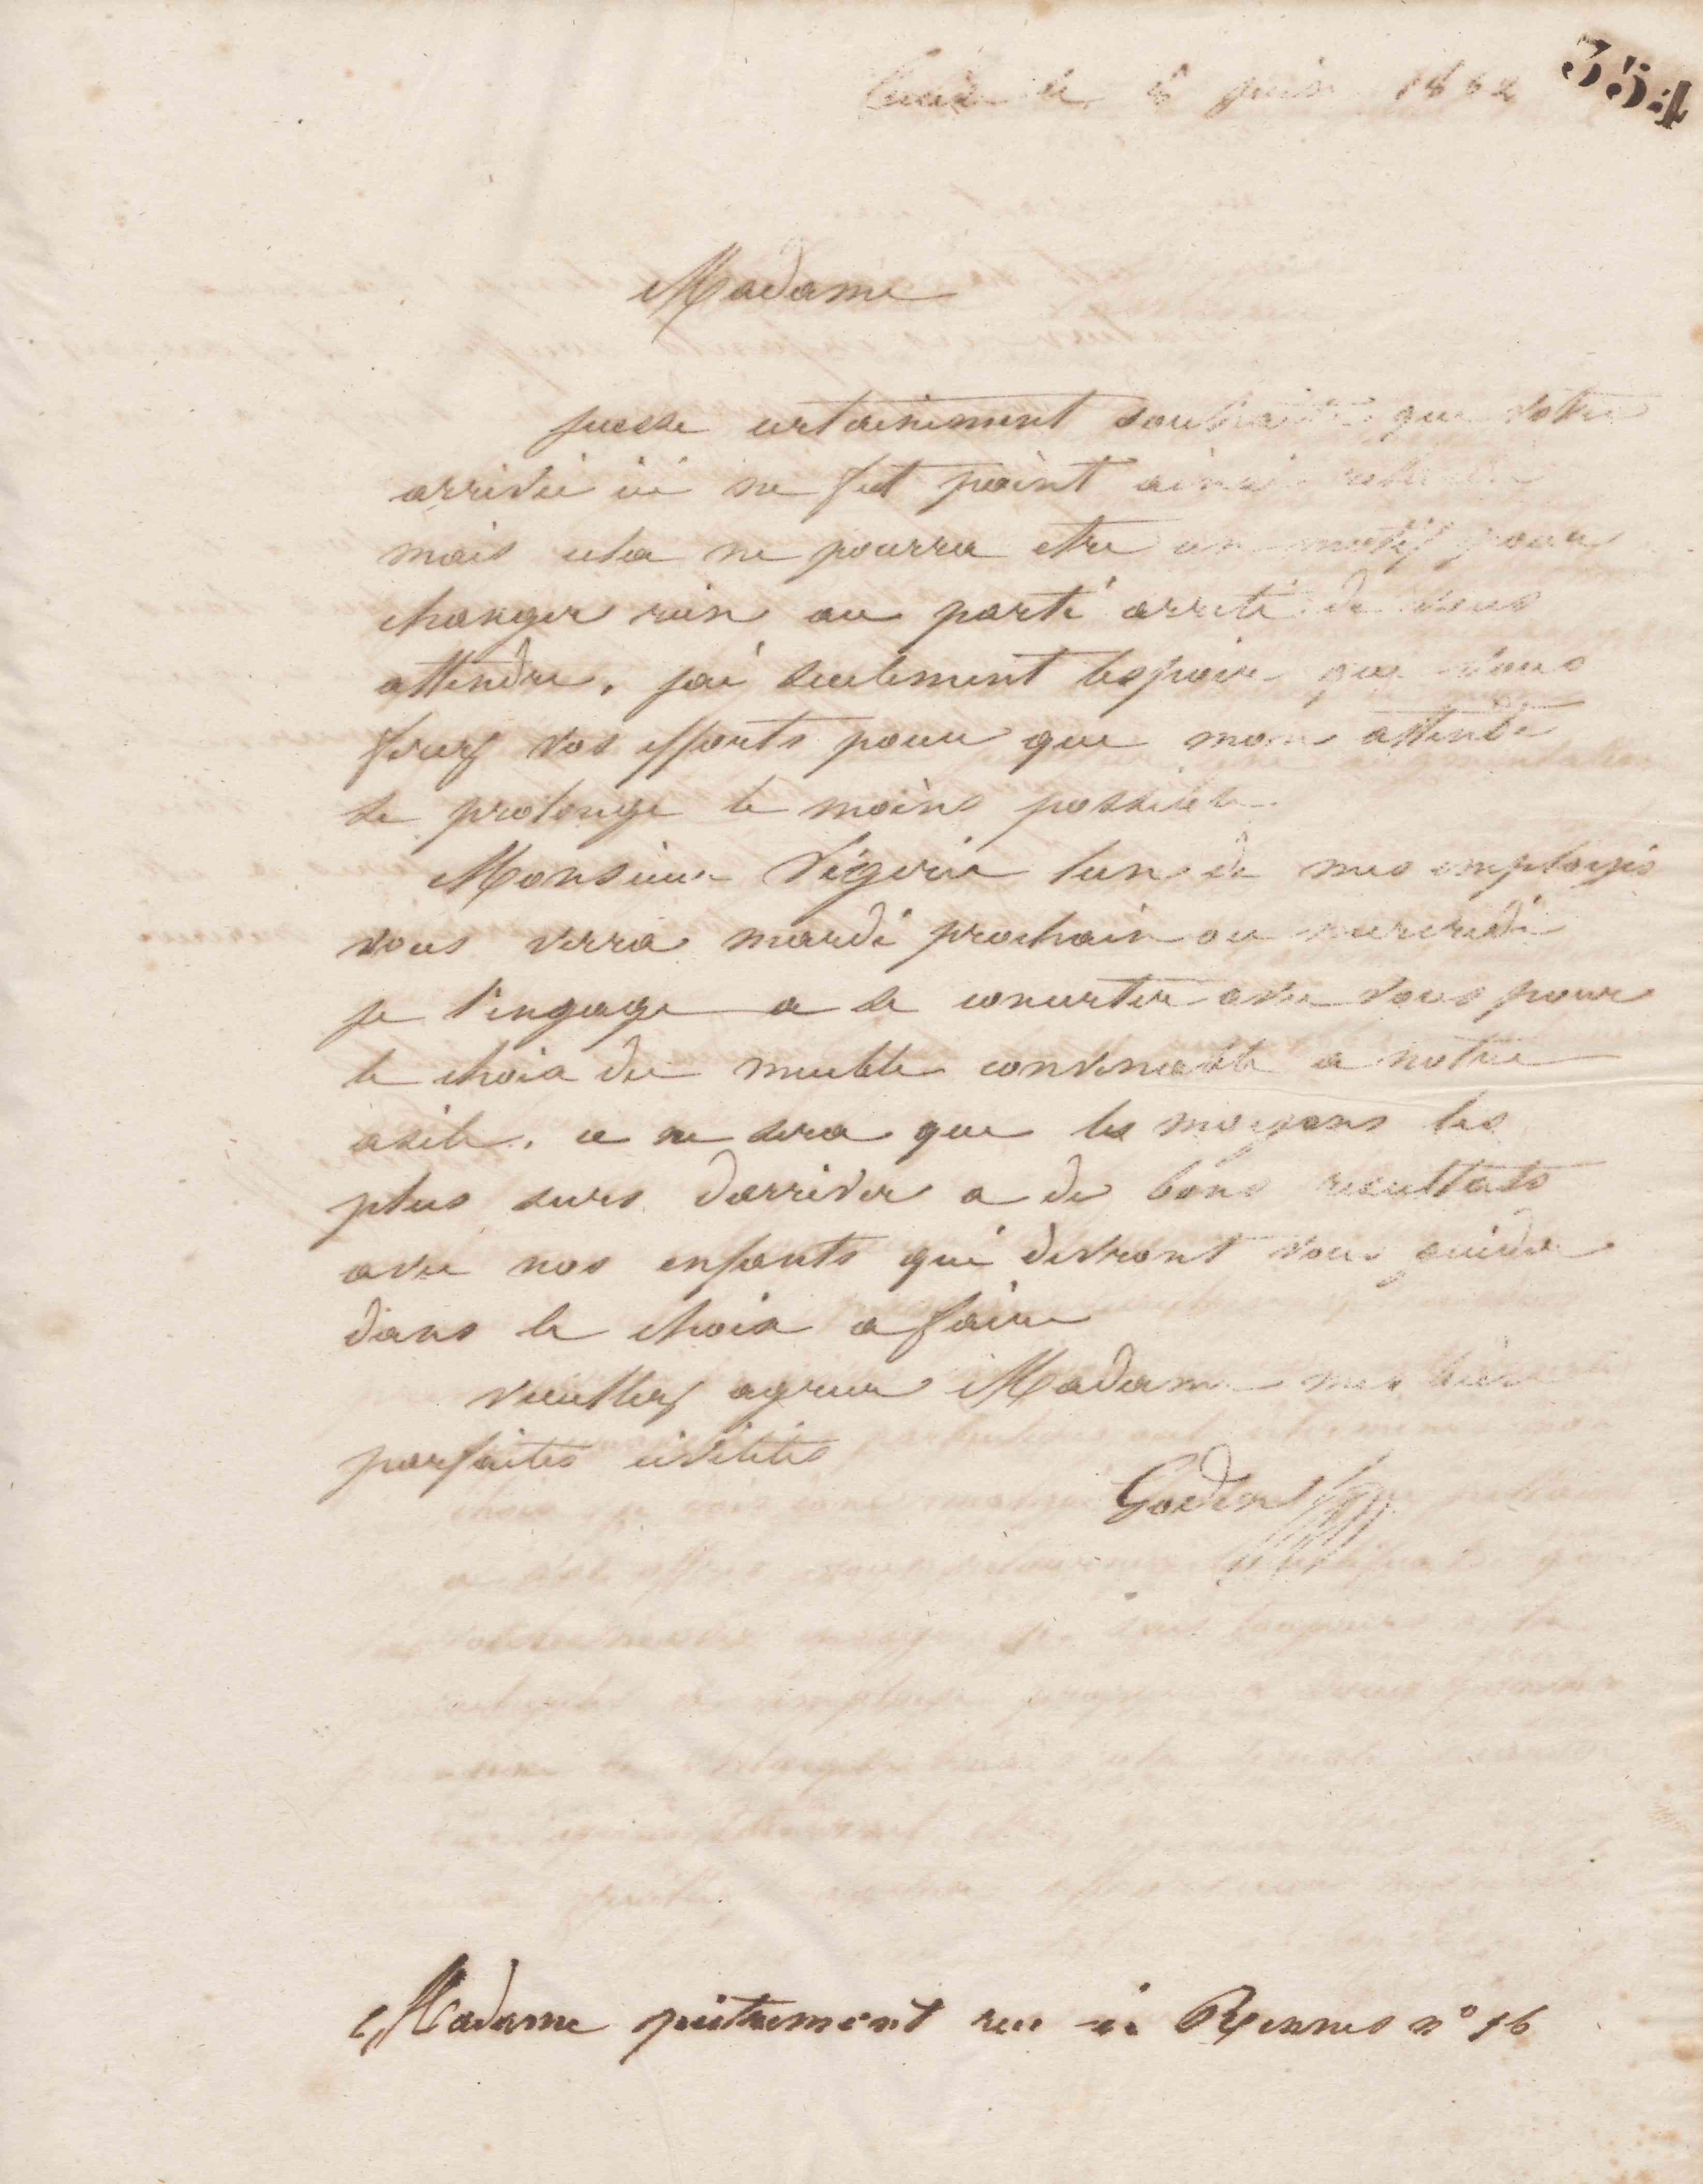 354
Guise le 8 juin 1862
Madame
jusse certainement souhaité que votre
arrivée ici ne fut point ainsi
mais cela ne pourra etre un motif pour
changer rien au parti arreté de vous
attendre. jai seulement lespoir que vous
ferez vos efforts pour que mon attente
se prolonge le moins possible.
Monsieur lun de mes employés
vous verra mardi prochain ou mercredi
je l'engage a se concerter avec vous pour
le choix du meuble convenable a notre
asile. ce ne sera que les moyens les
plus surs darriver a de bons resultats
avec nos enfants qui devront vous guider
dans le choix a faire
veuillez agreer Madame mes bien
parfaites civilités
Godin
Madame pietrement rue de Rennes n° 16